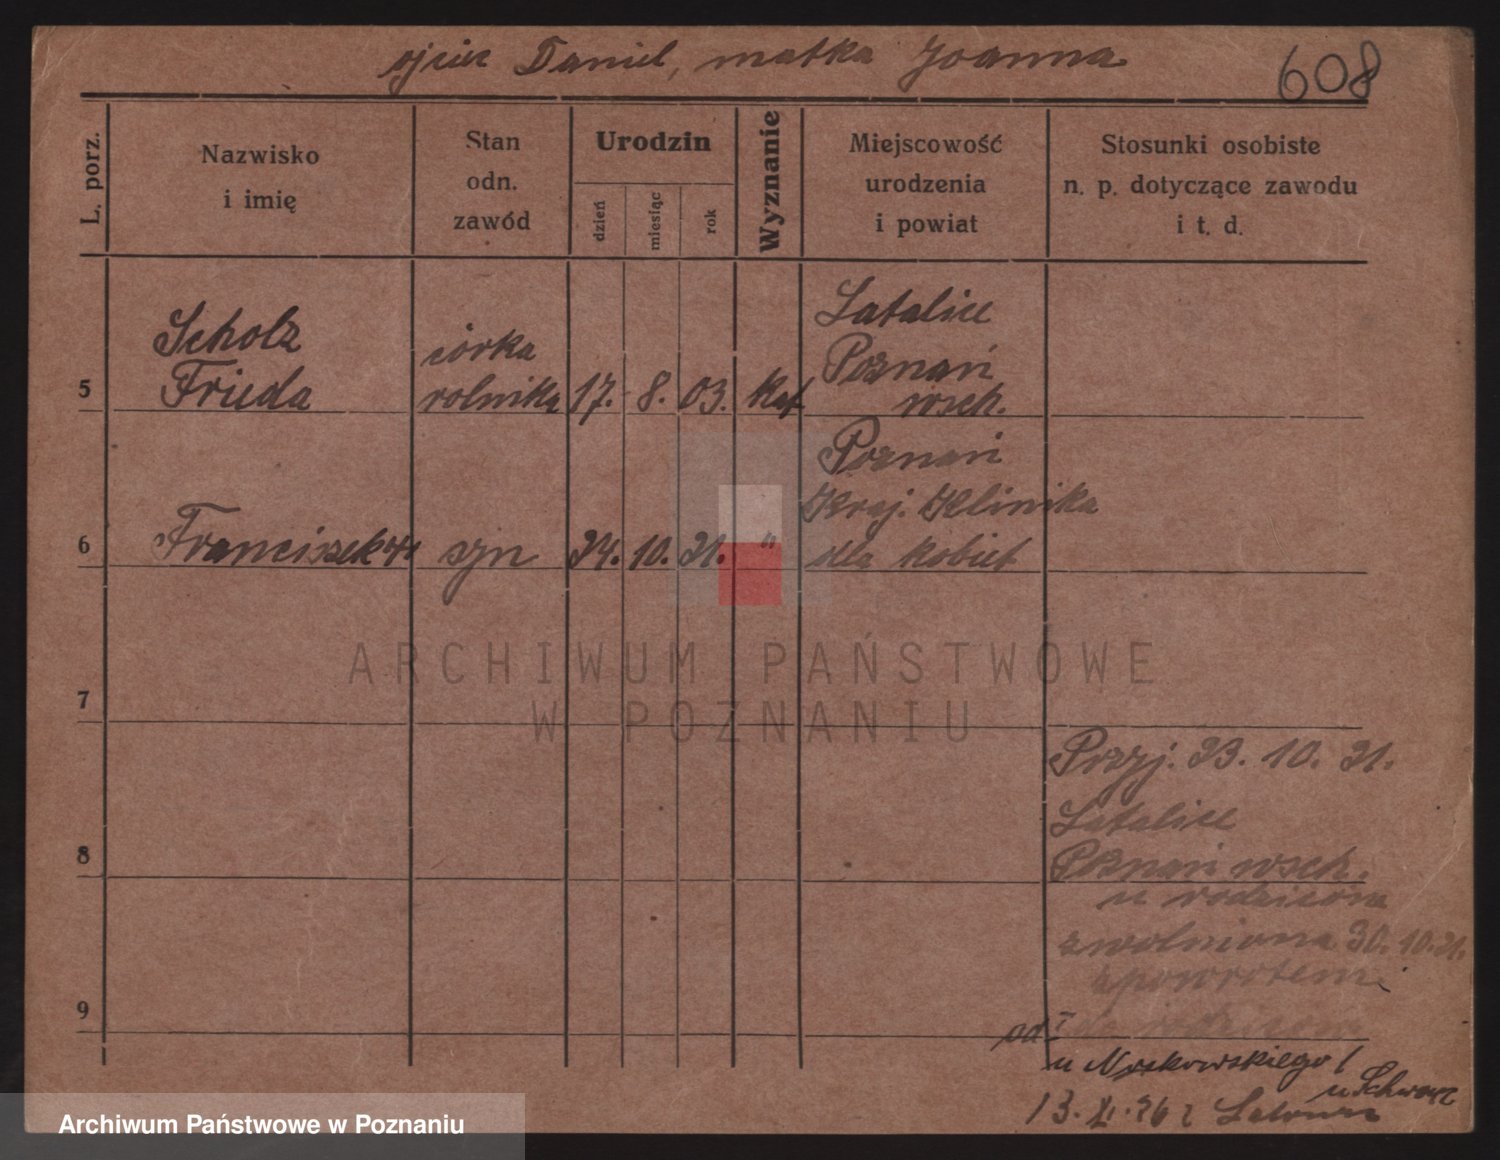 ojciec Daniel, matka Joanna
608
L. porz.
Nazwisko
i imię
Stan
odn.
zawód
Urodzin
dzień
miesiąc
rok
Wyznanie
Miejscowość
urodzenia
i powiat
Stosunki osobiste
n. p. dotyczące zawodu
i t. d.
5
Scholz
Frieda
córka
rolnika
17. 8. 03.
kat
Latalice
Poznań
wsch.
6
Franciszek
syn
24. 10. 21.
"
Poznań
Kraj. Klinika
dla kobiet
7
8
9
Przyj. 23. 10. 21.
Latalice
Poznań wsch.
u rodziców
zwolniona 30. 10. 21.
zpowrotem
do rodziców
od
u
u Schwarz
13. 26 z
ARCHIWUM PAŃSTWOWE
W POZNANIU
Archiwum Państwowe w Poznaniu